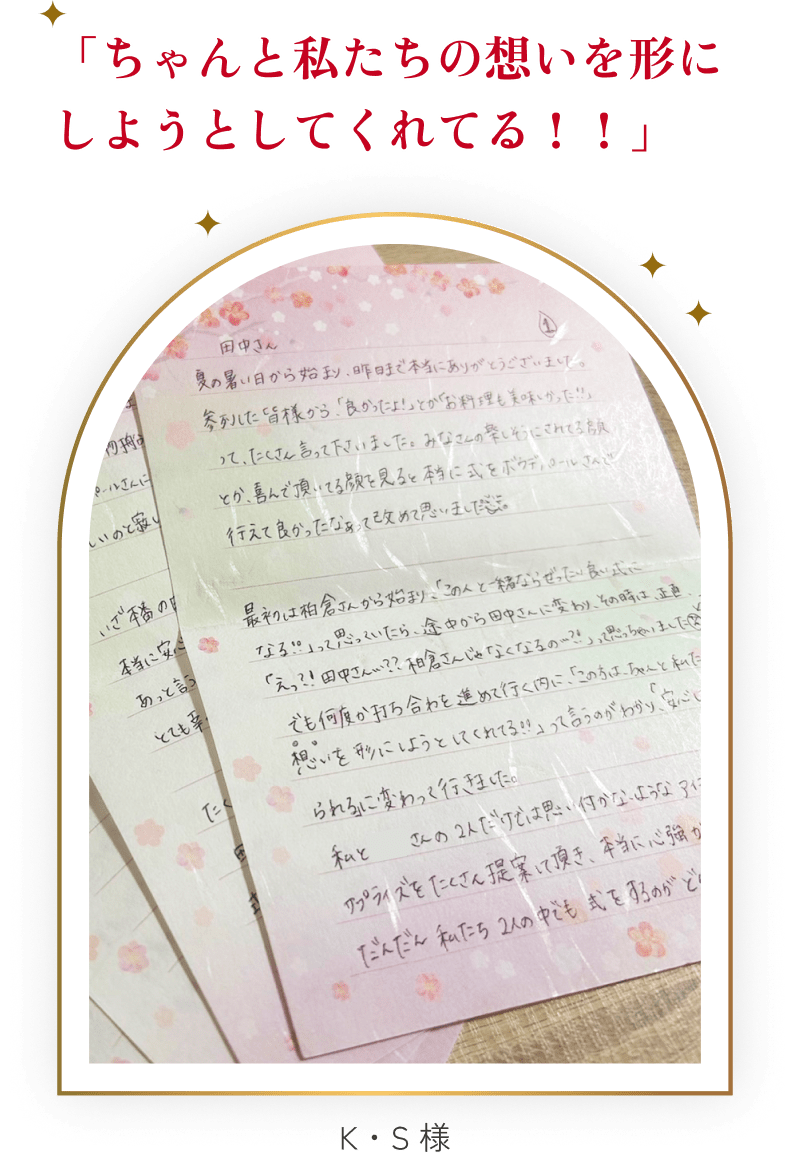 「ちゃんと私たちの想いを形に
しようとしてくれてる！！」
①
田中さん
夏の暑い日から始まり、昨日まで本当にありがとうございました。
参列した皆様から、「良かったよ！」とか「お料理も美味しかった!!」
って、たくさん言って下さいました。みなさんの楽しそうにされてる顔
とか、喜んで頂いてる顔を見ると本当に式をボヴァ・コールさんで
行えて良かったなぁって改めて思いました
最初は柏倉さんから始まり、「この人と一緒ならぜったい良い式に
なる!!」って思っていたら、途中から田中さんに変わり、その時は正直、
「えっ?! 田中さん…?? 柏倉さんじゃなくなるの…?!」って思っちゃいました
でも何度か打ち合わを進めて行く内に、「この方は、ちゃんと私た
想いを形にしようとしてくれてる!!」って言うのがわかり、「安心し
られる」に変わって行きました。
私と さんの2人だけでは思い付かないようなアイ
サプライズをたくさん提案して頂き、本当に心強か
だんだん 私たち 2人の中でも 式をするのが ど
ールさんに
しいのと寂し
いざ本番の
本当に安心
あっと言う
とても幸
たく
K・S 様